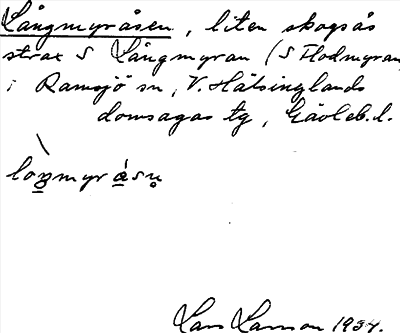 Långmyråsen, liten skogsås
strax S Långmyran (S Flodmyran
i Ramsjö sn, V. Hälsinglands
domsagas tg, Gävleb. l.
loŋmyråsn̥
Lars Larsson 1934.